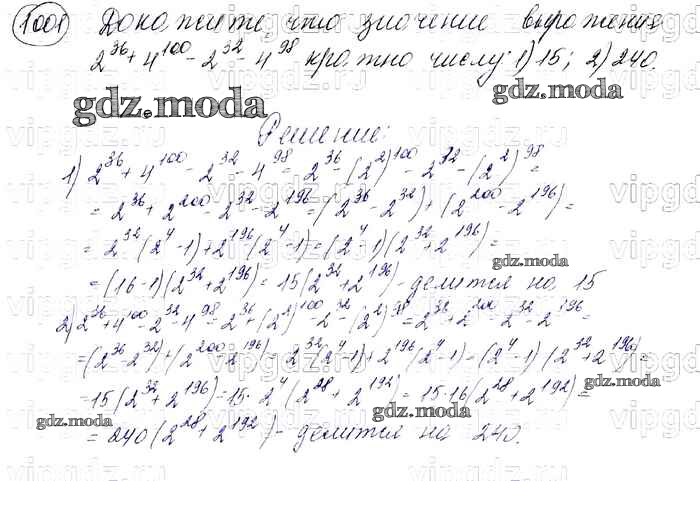 1001) Докажите, что значение выражения
2^36 + 4^100 - 2^32 - 4^98 кратно числу: 1) 15; 2) 240.
gdz.moda
gdz.moda
Решение:
1) 2^36 + 4^100 - 2^32 - 4^98 = 2^36 - (2^2)^100 - 2^32 - (2^2)^98 =
= 2^36 + 2^200 - 2^32 - 2^196 = (2^36 - 2^32) + (2^200 - 2^196) =
= 2^32 (2^4 - 1) + 2^196 (2^4 - 1) = (2^4 - 1)(2^32 + 2^196) =
gdz.moda
= (16 - 1)(2^32 + 2^196) = 15 (2^32 + 2^196) - делится на 15
2) 2^36 + 4^100 - 2^32 - 4^98 = 2^36 + (2^2)^100 - 2^32 - (2^2)^98 = 2^36 + 2^200 - 2^32 - 2^196 =
= (2^36 - 2^32) + (2^200 - 2^196) = 2^32 (2^4 - 1) + 2^196 (2^4 - 1) = (2^4 - 1)(2^32 + 2^196) =
= 15 (2^32 + 2^196) = 15 · 2^4 (2^28 + 2^192) = 15 · 16 (2^28 + 2^192) =
gdz.moda
gdz.moda
gdz.moda
= 240 (2^28 + 2^192) - делится на 240.